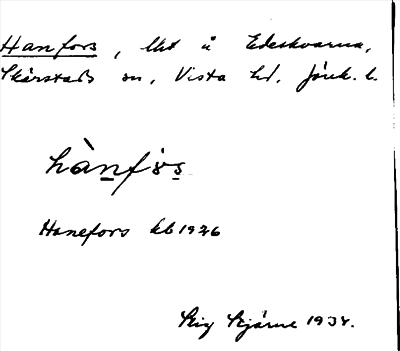 Hanfors, lht å Edeskvarna,
Skärstads sn, Vista hd, Jönk. l.
hànfòs
Hanefors kb 1926
Stig Bjärne 1938.